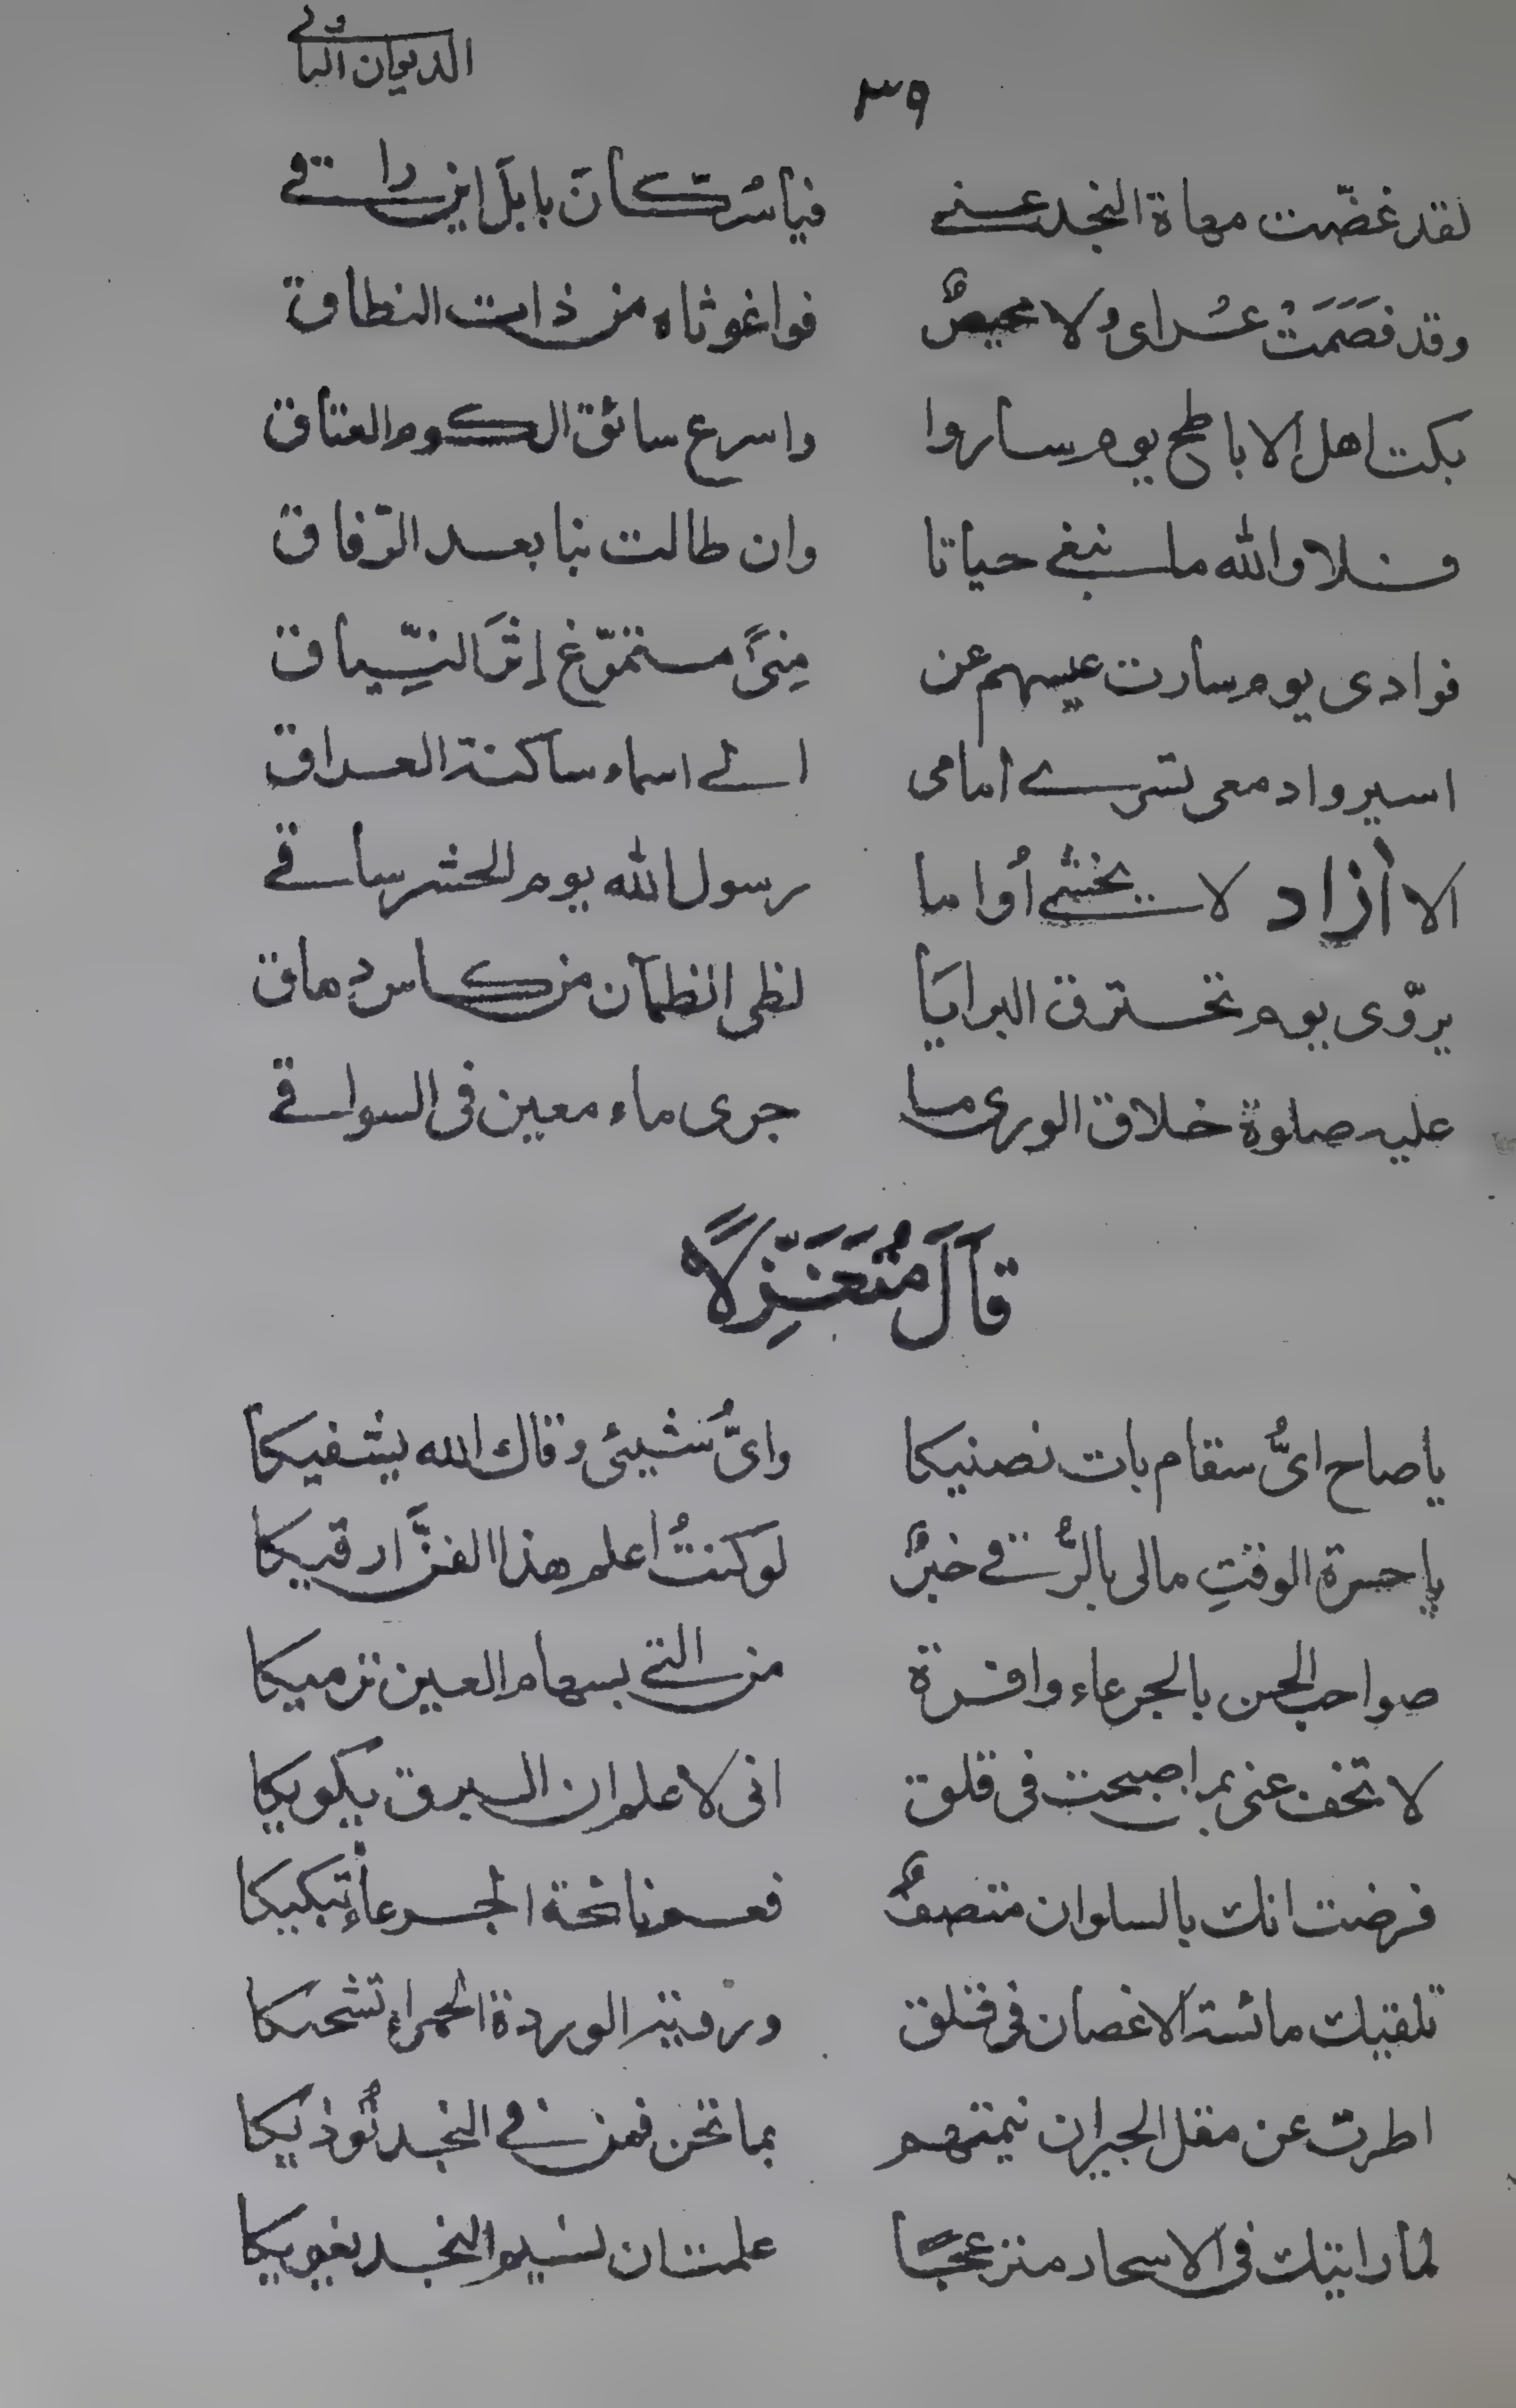 الديوان الثاني
٣٩
لقد غضّت مهاة النجد عني فيا سُكّان بابلَ اين راقي
وقد فصَمَتْ عُراى ولا محيصٌ فوا غوثاه من ذات النطاق
بكت اهل الاباطح يوم ساروا واسرع سائق الكوم العتاق
فلا والله ما نبغي حياتا وان طالت بنا بعد الرّفاق
فوادى يوم سارت عيسهم عن مِنىً متمرّغ إثرَ النّياق
اسير وادمعى تسرى امامى الى اسماء ساكنة العراق
الا أزاد لا يخشى أُواما رسول الله يوم الحشر ساقي
يروّى يوم تحترق البرايَا لظى الظمآن من كاس دِهاق
عليه صلوة خلاق الورى ما جرى ماء معين فى السواقي
قَالَ مُتَغَزِّلًا
يا صاح اىُّ سقام بات نصنيكا واىُّ شيئى وقاك الله يشفيكا
يا حسرة الوقتِ مالى بالرُّقي خبرٌ لو كنتُ اعلم هذا الفنَّ ارقيكا
صواحب الحسن بالجرعاء وافرة من التي بسهام العين ترميكا
لا تخف عنى بم اصبحت فى قلق انى لاعلم ان البرق يكويكا
فرضت انك بالسلوان متصفٌ فعم نائحة الجرعاءِ تبكيكا
تلقيك مائسة الاغصان فى قلق ورؤية الوردة الحمراءِ تشحكا
اطرت عن مقل الجيران نيمتهم بما تحن فمن في النجد تُوذيكا
لما رايتك فى الاسحار منزعجًا علمت ان نسيم النجد يغويكا